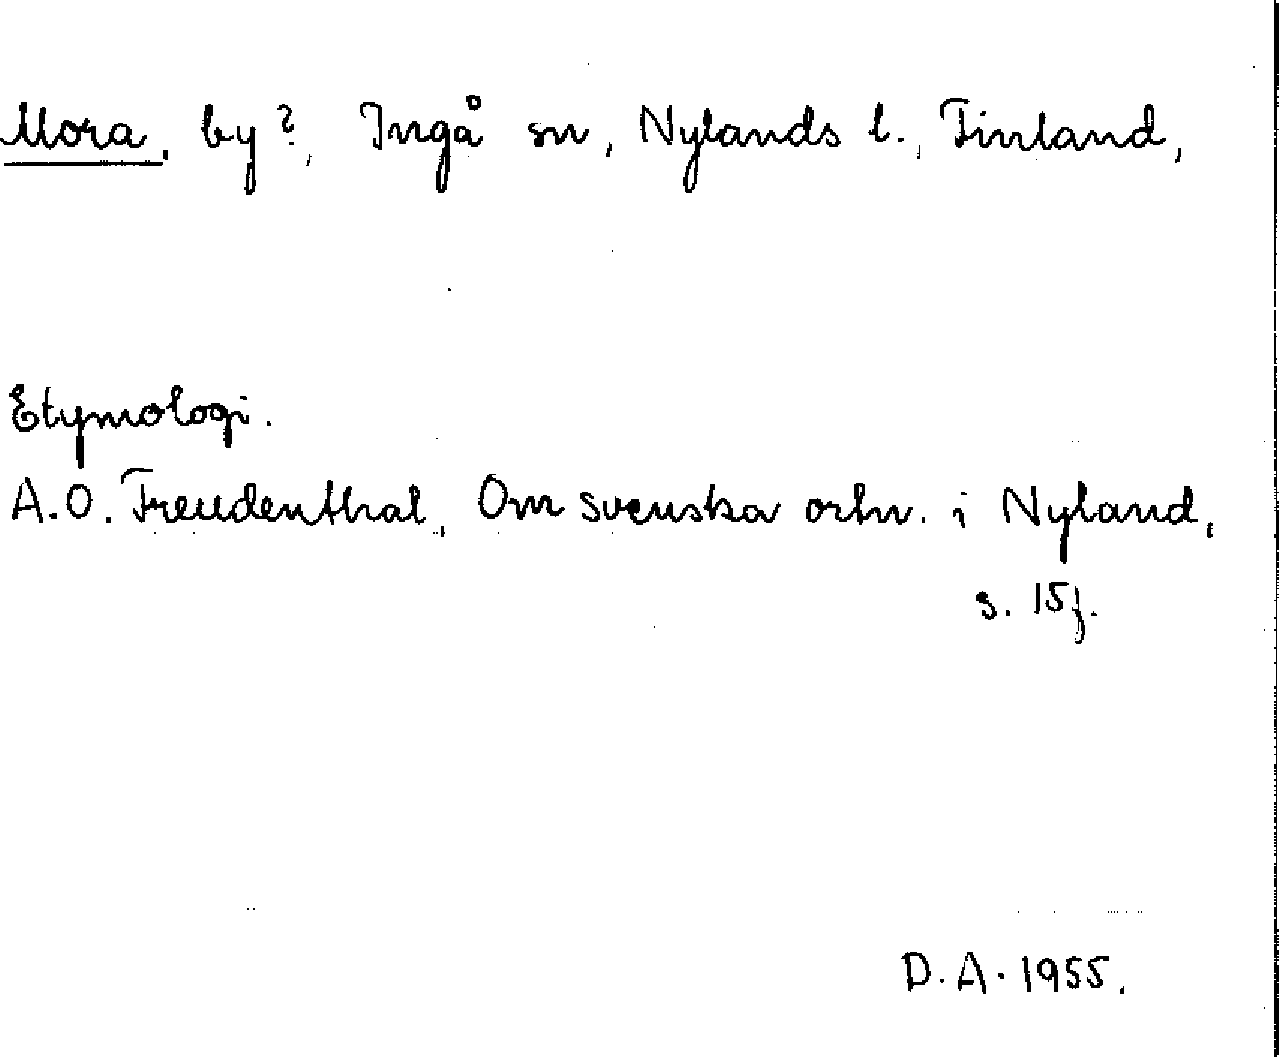 Mora, by?, Ingå sn, Nylands l., Finland,
Etymologi.
A.O. Freudenthal, Om svenska ortn. i Nyland,
s. 15f.
D.A. 1955.